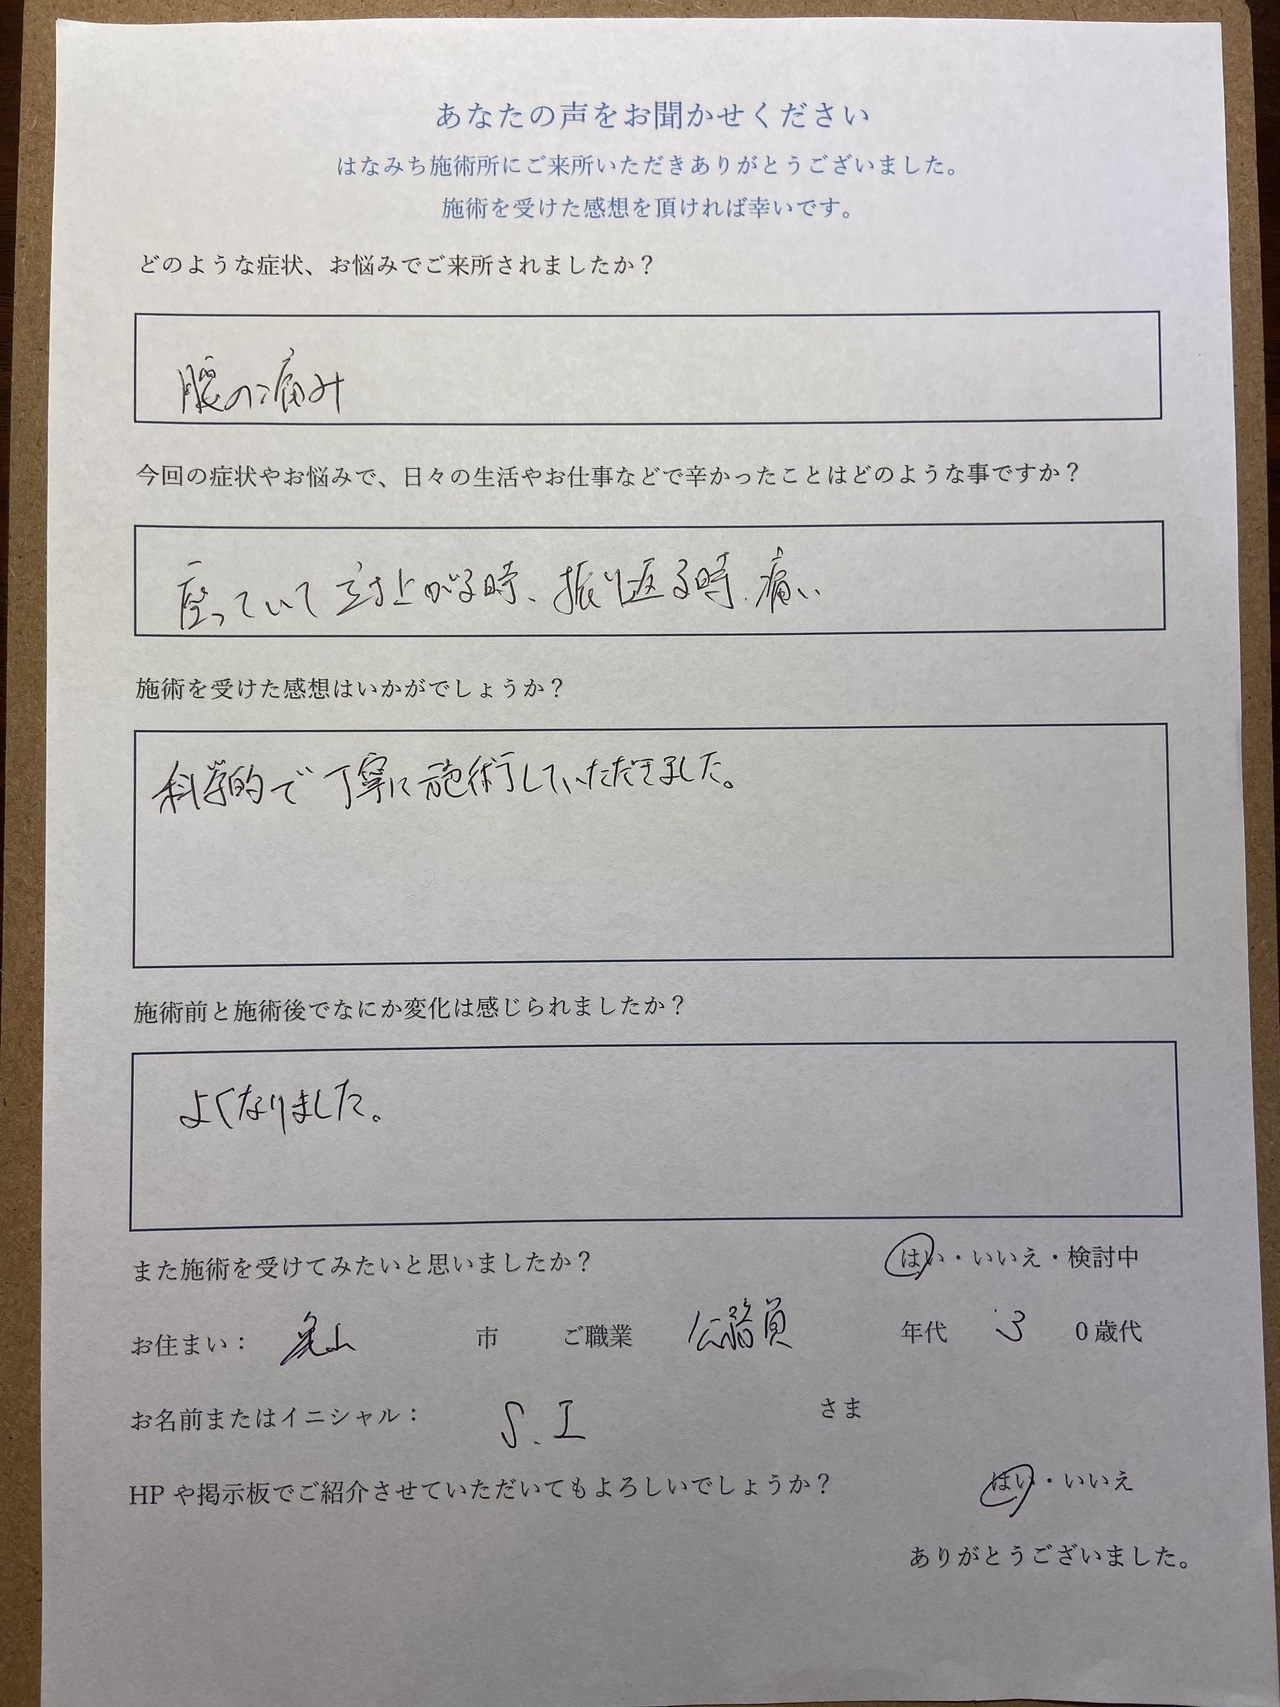 あなたの声をお聞かせください
はなみち施術所にご来所いただきありがとうございました。
施術を受けた感想を頂ければ幸いです。
どのような症状、お悩みでご来所されましたか？
腰の痛み
今回の症状やお悩みで、日々の生活やお仕事などで辛かったことはどのような事ですか？
座っていて立ち上がる時、振り返る時、痛い
施術を受けた感想はいかがでしょうか？
科学的で丁寧に施術していただきました。
施術前と施術後でなにか変化は感じられましたか？
よくなりました。
また施術を受けてみたいと思いましたか？ はい・いいえ・検討中
お住まい： 亀山 市 ご職業 公務員 年代 3 0歳代
お名前またはイニシャル： S.I さま
HPや掲示板でご紹介させていただいてもよろしいでしょうか？ はい・いいえ
ありがとうございました。